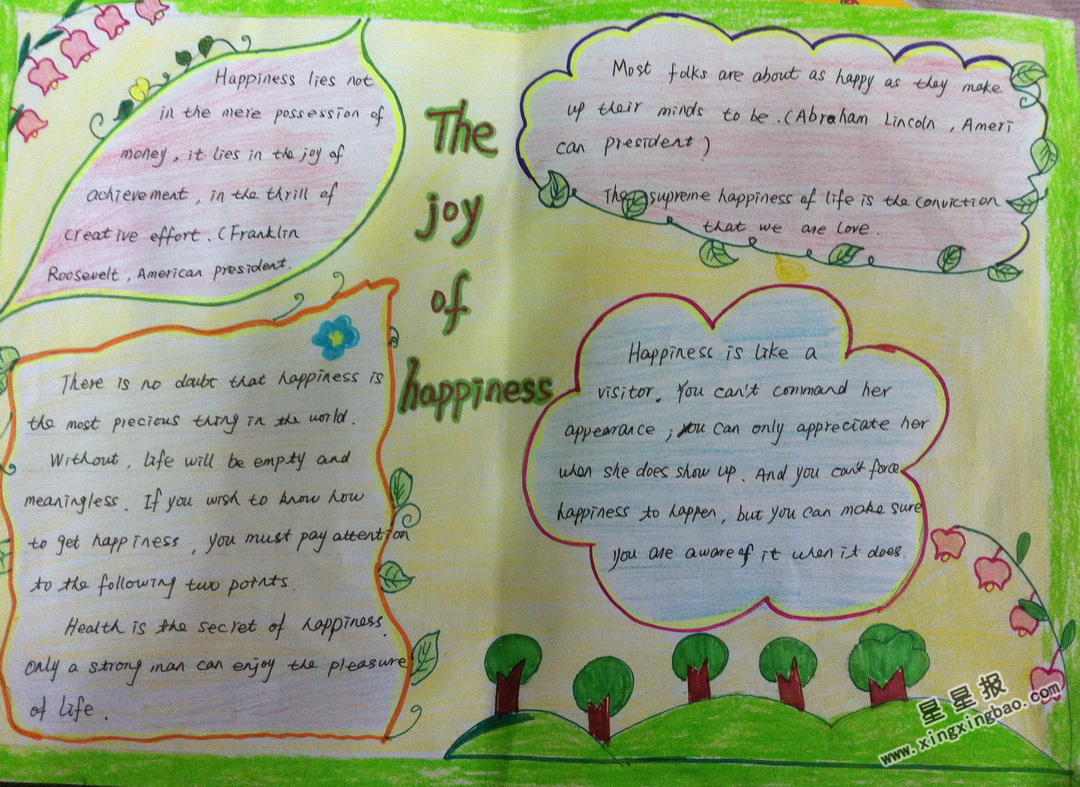 Happiness lies not
in the mere possession of
money, it lies in the joy of
achievement, in the thrill of
creative effort. (Franklin
Roosevelt, American president.
The
joy
of
happiness
Most folks are about as happy as they make
up their minds to be. (Abraham Lincoln, Ameri
can president)
The supreme happiness of life is the conviction
that we are love.
There is no doubt that happiness is
the most precious thing in the world.
Without, life will be empty and
meaningless. If you wish to know how
to get happiness, you must pay attention
to the following two points.
Health is the secret of happiness.
Only a strong man can enjoy the pleasure
of life.
Happiness is like a
visitor. You can't command her
appearance; you can only appreciate her
when she does show up. And you can't force
happiness to happen, but you can make sure
you are aware of it when it does.
星星报
www.xingxingbao.com